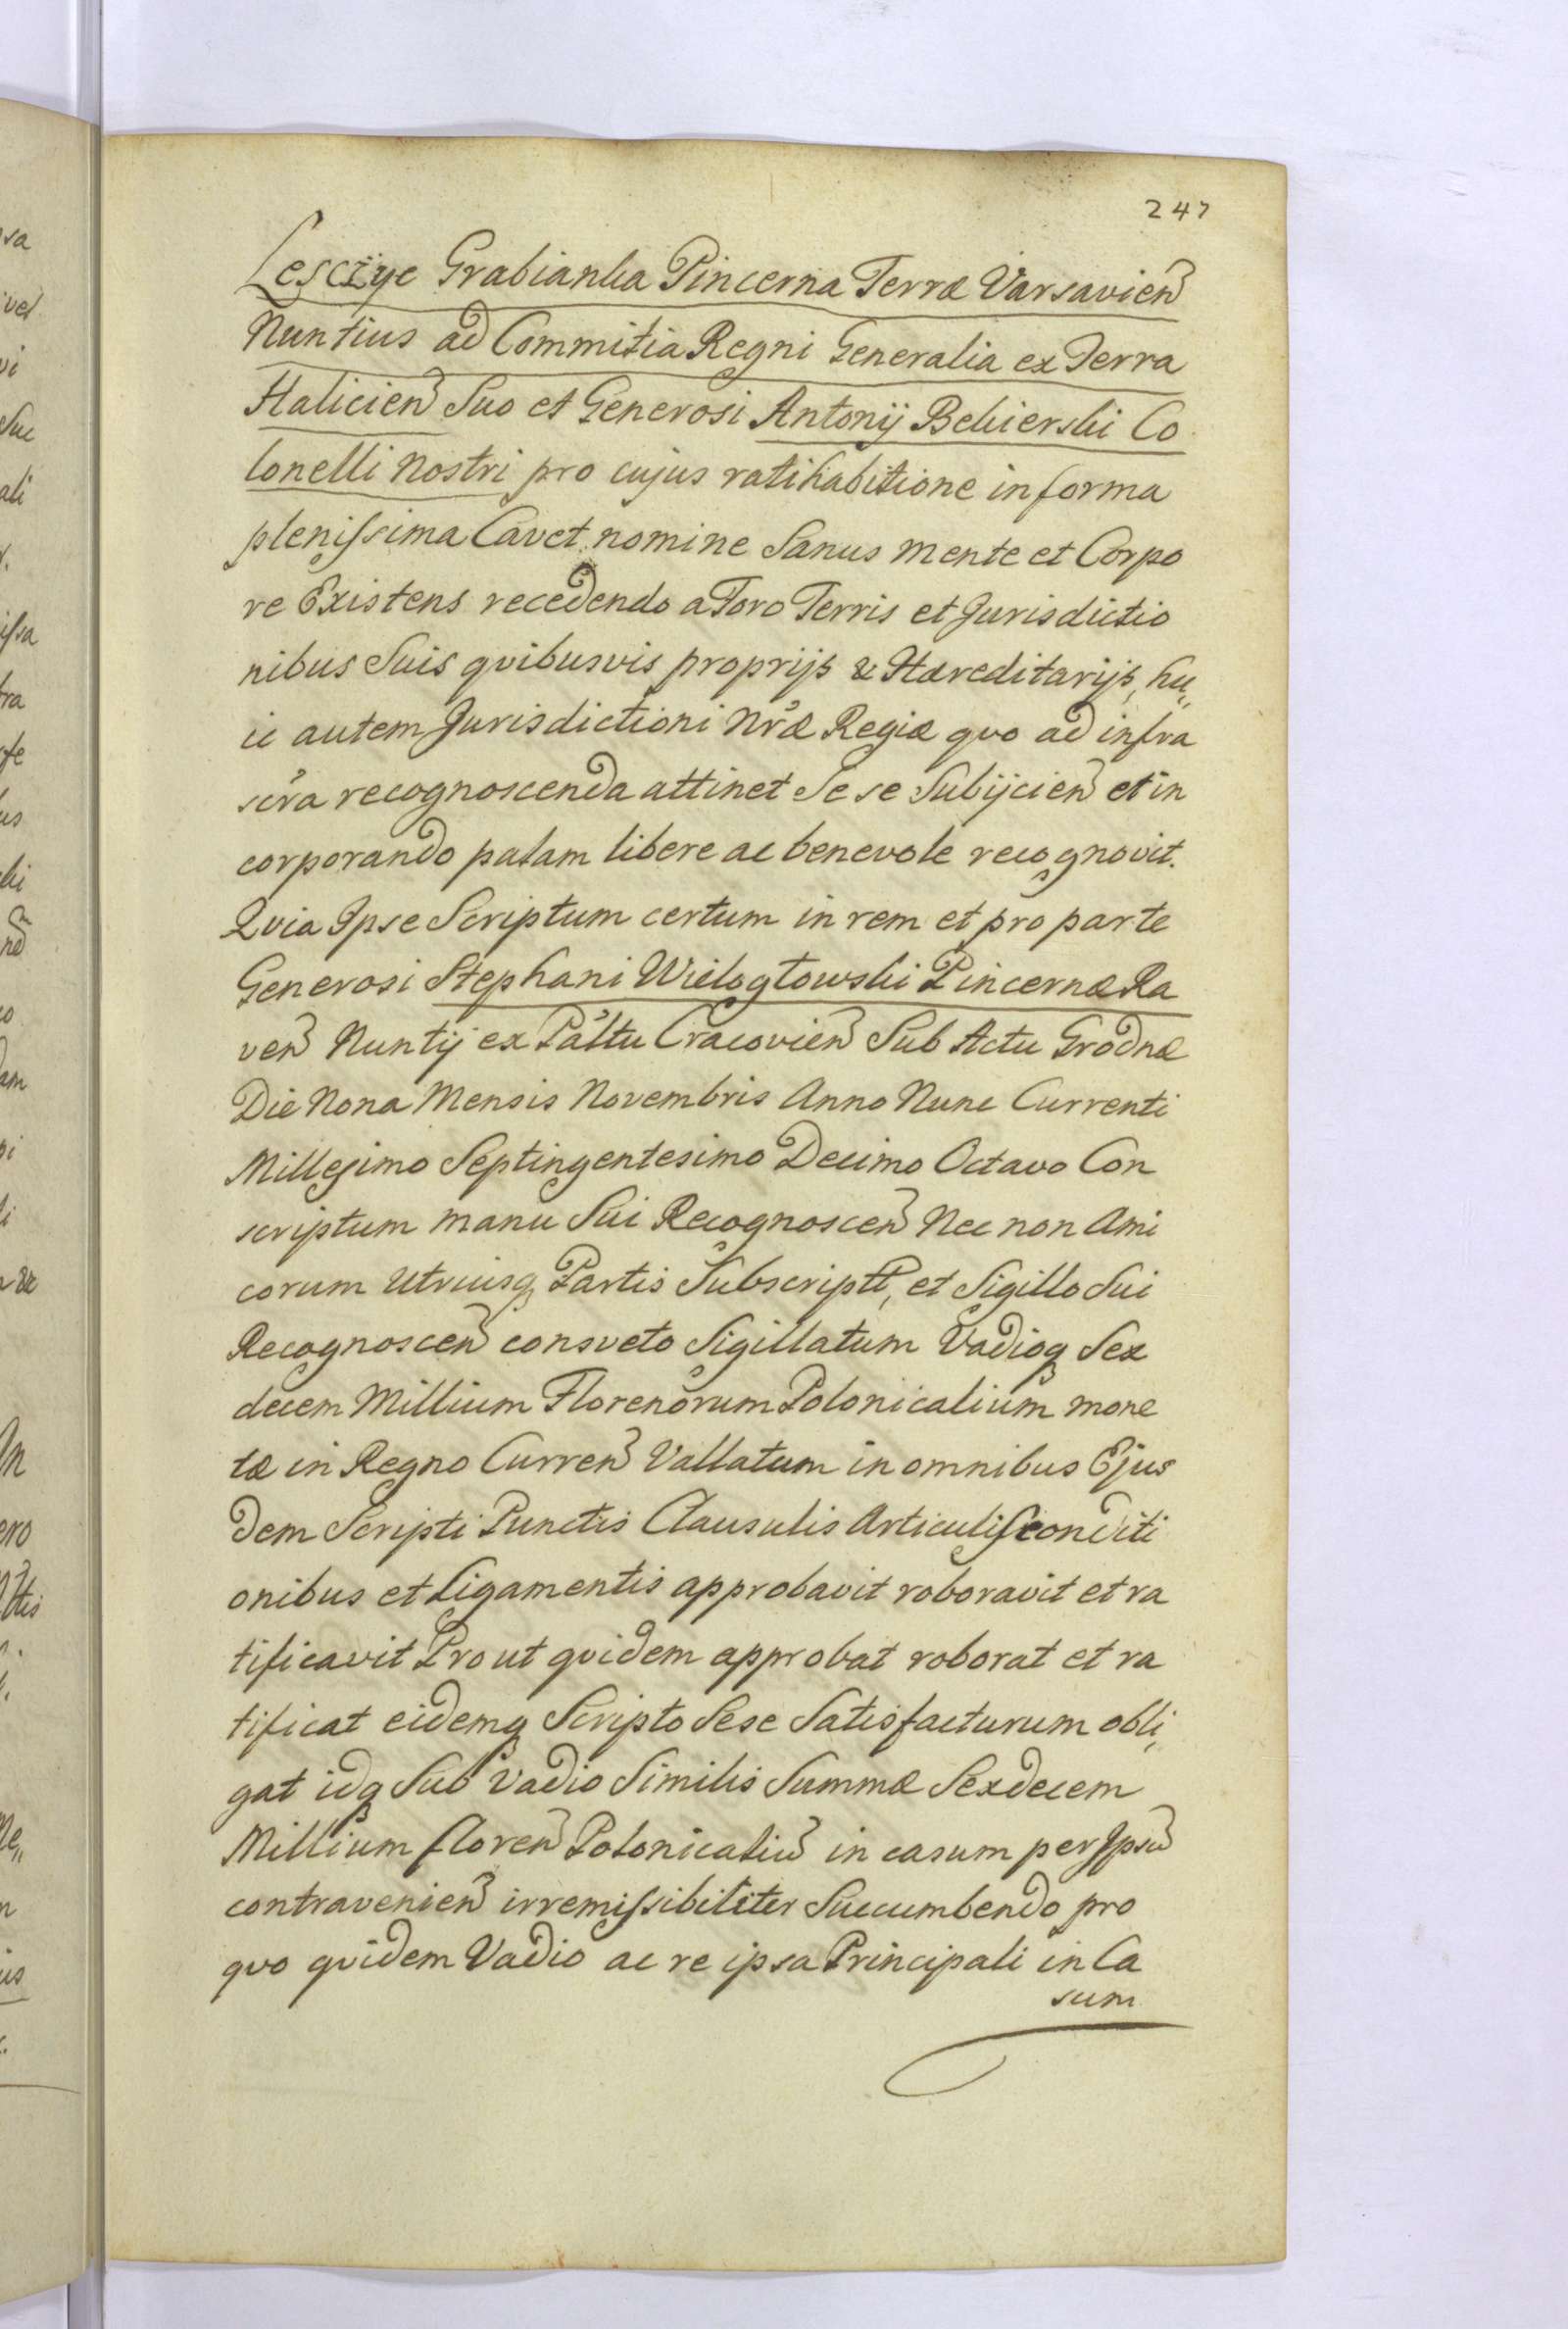 247
Lescżye Grabianka Pincerna Terræ Varsavien
Nuntius ad Commitia Regni Generalia ex Terra
Halicien Suo et Generosi Antonij Bekierski Co
lonelli Nostri pro cujus ratihabitione in forma
plenissima Cavet nomine Sanus mente et Corpo
re Existens recedendo a Foro Terris et Jurisdictio
nibus Suis qvibusvis proprijs & Hæreditarijs, hu„
ic autem Jurisdictioni Nræ Regiæ qvo ad infra
scra recognoscenda attinet Se se Subijcien et in
corporando palam libere ac benevole recognovit.
Qvia Ipse Scriptum certum in rem et pro parte
Generosi Stephani Wielogłowski Pincernæ Ra
ven Nuntij ex Pałtu Cracovien Sub Actu Grodnæ
Die Nona Mensis Novembris Anno Nunc Currenti
Millesimo Septingentesimo Decimo Octavo Con
scriptum manu Sui Recognoscen Nec non Ami
corum Utriusq Partis Subscriptt, et Sigillo Sui
Recognoscen consveto Sigillatum Vadioq Sex
decem Millium Florenorum Polonicalium mone
tæ in Regno Curren Vallatum in omnibus Ejus
dem Scripti Punctis Clausulis Articulis conditi
onibus et Ligamentis approbavit roboravit et ra
tificavit Prout qvidem approbat roborat et ra
tificat eidemq Scripto Sese Satisfacturum obli„
gat idq Sub Vadio Similis Summæ Sexdecem
Millium floren Polonicaliu in casum per Ipsu
contravenien irremissibiliter Succumbendo pro
qvo qvidem Vadio ac re ipsa Principali in Ca
sum